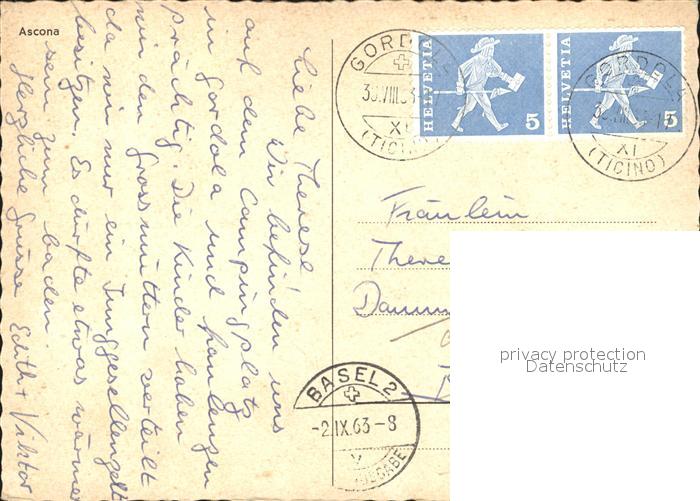 Ascona
Liebe Therese
Wir befinden uns
auf dem Campingplatz
in Gordola und faulenzen
prächtig. Die Kinder haben
wir den Grossmüttern verteilt
da wir nur ein Junggesellenzelt
besitzen. Es dürfte etwas wärmer
sein zum baden.
Herzliche Grüsse Edith + Viktor
GORDOLA
XI
(TICINO)
HELVETIA
5
HELVETIA
5
GORDOLA
XI
(TICINO)
Fräulein
There
BASEL 2
-2.IX.63-8
privacy protection
Datenschutz